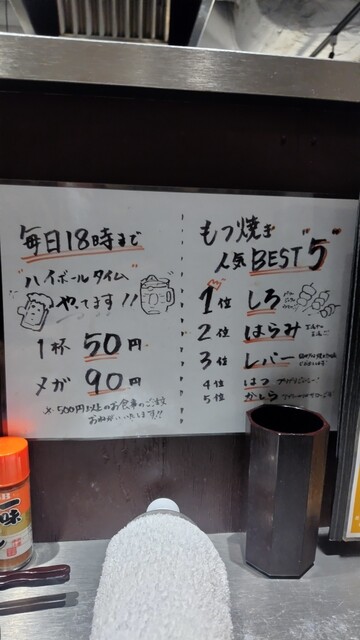 毎日18時まで
"ハイボールタイム"
やってます!!
1杯 50円
メガ 90円
※500円以上のお食事のご注文
お願いいたします!!
もつ焼き
人気BEST"5"
1位 しろ
2位 はらみ
3位 レバー
4位 はつ
5位 かしら
一味